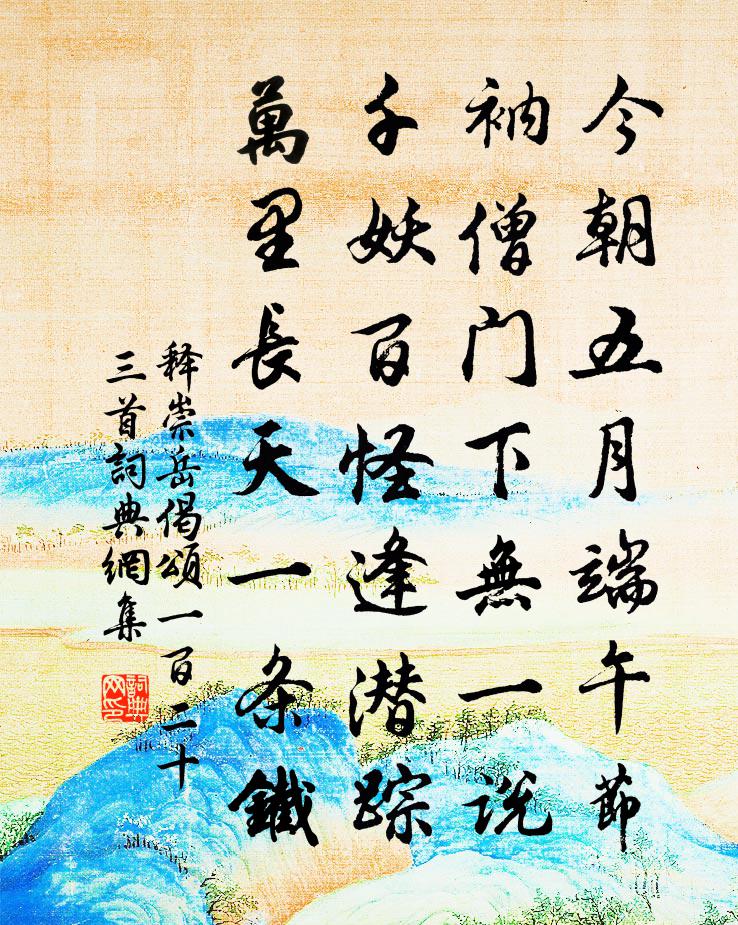 今朝五月端午節
衲僧門下無一説
千妖百怪逢潜踪
萬里長天一条鐵
释崇岳偈頌一百二十
三首詞典網集
詞典網印